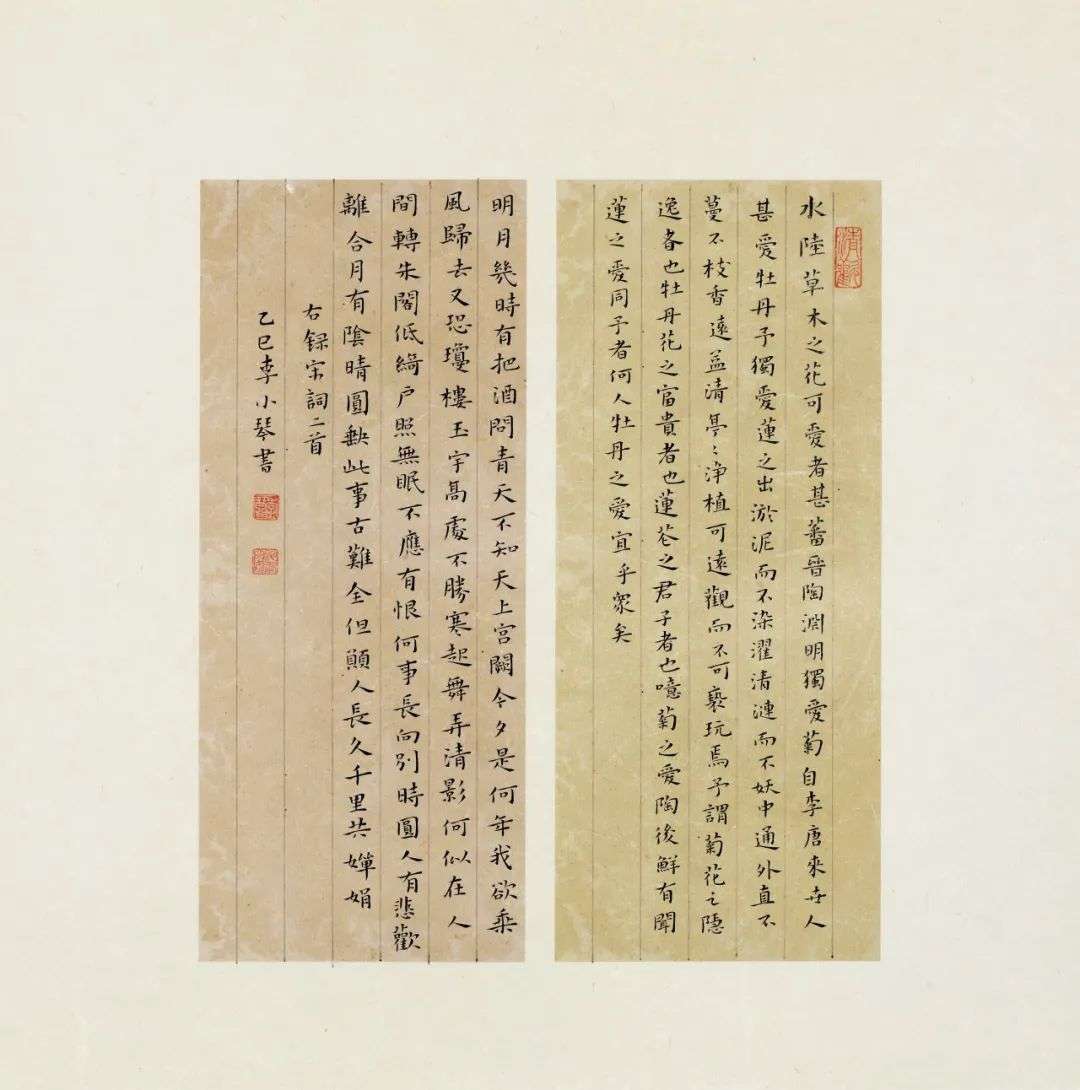 水陸草木之花可愛者甚蕃晉陶淵明獨愛菊自李唐來世人
甚愛牡丹予獨愛蓮之出淤泥而不染濯清漣而不妖中通外直不
蔓不枝香遠益清亭〻淨植可遠觀而不可褻玩焉予謂菊花之隱
逸者也牡丹花之富貴者也蓮花之君子者也噫菊之愛陶後鮮有聞
蓮之愛同予者何人牡丹之愛宜乎衆矣
明月幾時有把酒問青天不知天上宮闕今夕是何年我欲乘
風歸去又恐瓊樓玉宇高處不勝寒起舞弄清影何似在人
間轉朱閣低綺户照無眠不應有恨何事長向別時圓人有悲歡
離合月有陰晴圓缺此事古難全但願人長久千里共嬋娟
右録宋詞二首
乙巳李小琴書